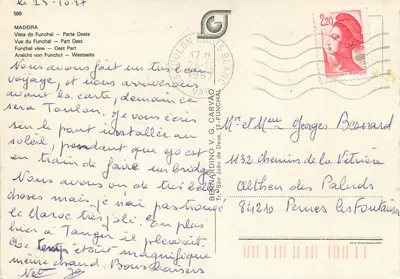 le 25-10.87
599
MADEIRA
Vista do Funchal — Parte Oeste
Vue du Funchal — Part Oest
Funchal view — Oest Part
Ansicht von Funchal — Westseite
Nous avons fait un très beau
voyage, et nous arriverons
avant la carte, demain ce
sera Toulon. Je vous écris
sur le pont installée au
soleil, pendant que
en train de faire un bridge
Nous avons vu de très belles
choses mais je n'ai pas trouvé
le Maroc très joli. En plus
bien à Tanger il pleuvait.
temps était magnifique
même chaud. Bons baisers
BERNARDINO V. G. CARVÃO
FUNCHAL
TOULON
VAR
2,20
Mr et Mme Georges
1132 chemin de la Vétrière
Althen des Paluds
84210 Pernes les Fontaines